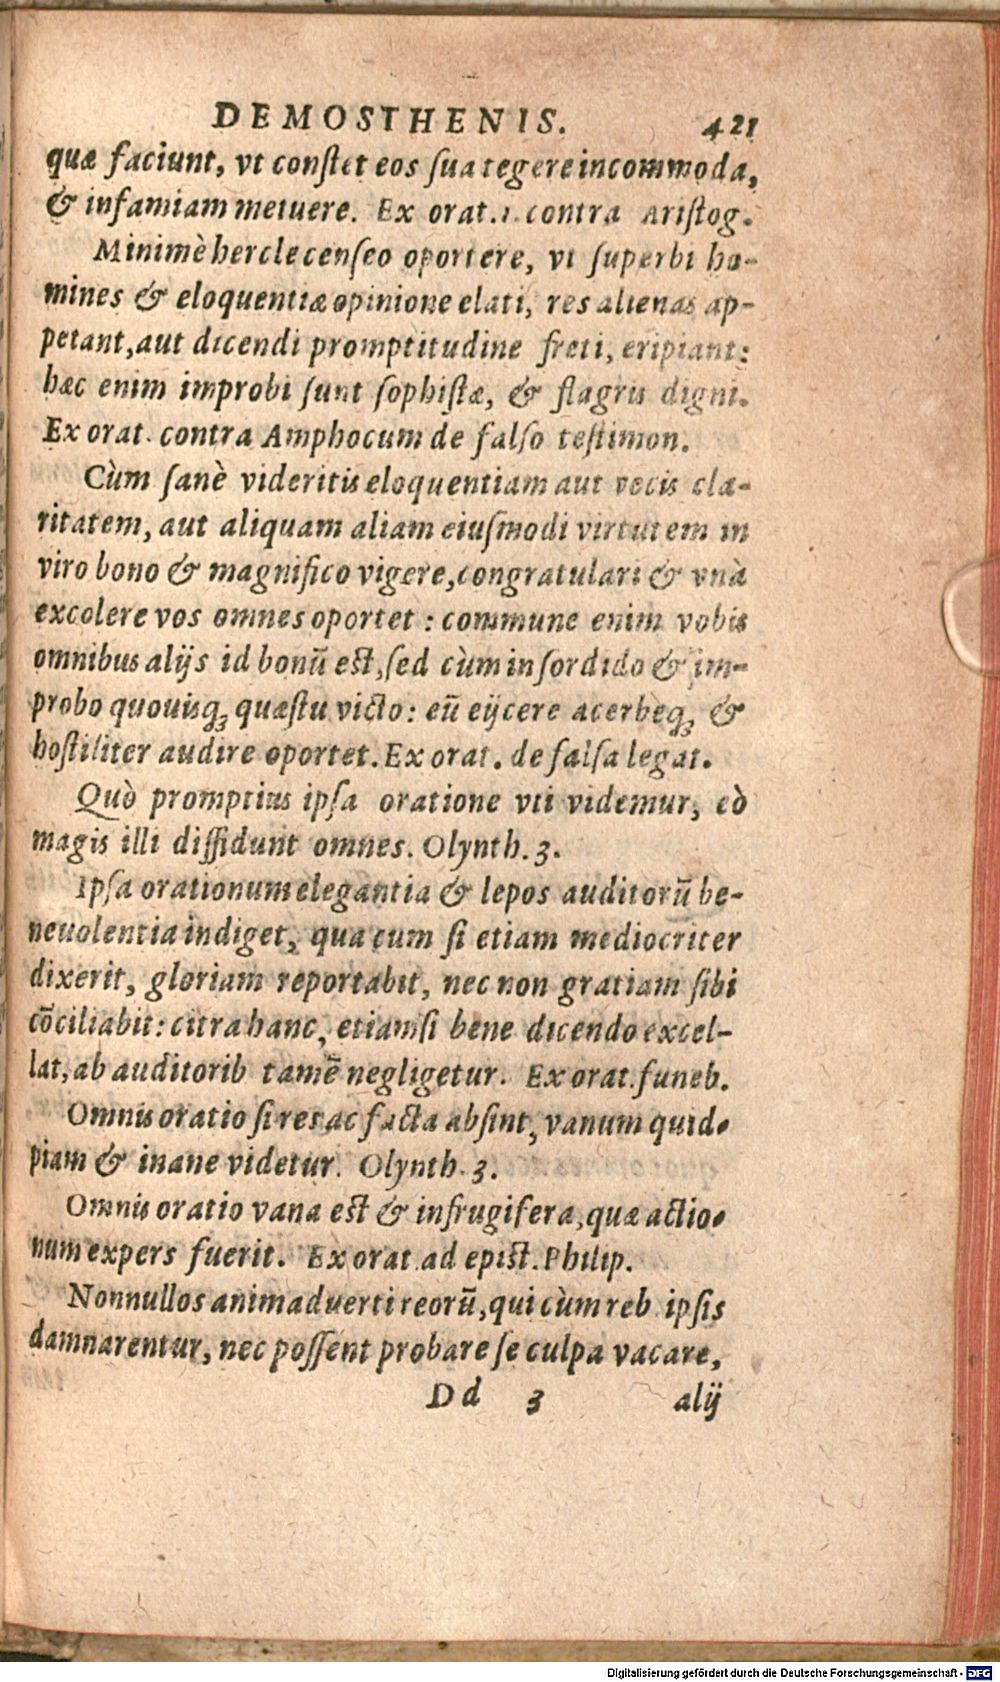 DEMOSTHENIS. 421
quæ faciunt, vt conſtet eos ſua tegere incommoda,
& infamiam metuere. Ex orat. 1. contra Ariſtog.
Minimè hercle cenſeo oportere, vt ſuperbi ho-
mines & eloquentiæ opinione elati, res alienas ap-
petant, aut dicendi promptitudine freti, eripiant:
hæc enim improbi ſunt ſophiſtæ, & flagris digni.
Ex orat. contra Amphocum de falſo teſtimon.
Cùm ſanè videritis eloquentiam aut vocis cla-
ritatem, aut aliquam aliam eiuſmodi virtutem in
viro bono & magnifico vigere, congratulari & vnà
excolere vos omnes oportet: commune enim vobis
omnibus alijs id bonũ eſt, ſed cùm in ſordido & im-
probo quouisq; quæſtu victo: eũ eijcere acerbeq; &
hoſtiliter audire oportet. Ex orat. de falſa legat.
Quò promptius ipſa oratione vti videmur, eò
magis illi diffidunt omnes. Olynth. 3.
Ipſa orationum elegantia & lepos auditorũ be-
neuolentia indiget, qua cum ſi etiam mediocriter
dixerit, gloriam reportabit, nec non gratiam ſibi
cõciliabit: citra hanc, etiamſi bene dicendo excel-
lat, ab auditorib tamẽ negligetur. Ex orat. funeb.
Omnis oratio ſi res ac facta abſint, vanum quid-
piam & inane videtur. Olynth. 3.
Omnis oratio vana eſt & infrugifera, quæ actio-
num expers fuerit. Ex orat. ad epiſt. Philip.
Nonnullos animaduerti reorũ, qui cùm reb. ipſis
damnarentur, nec poſſent probare ſe culpa vacare,
Dd 3 alij
Digitalisierung gefördert durch die Deutsche Forschungsgemeinschaft - DFG